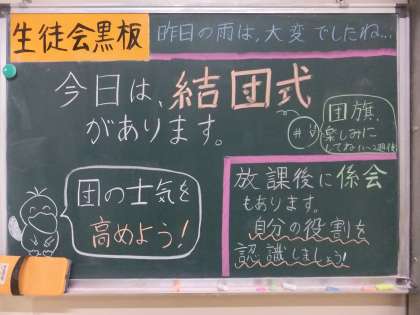 生徒会黒板
昨日の雨は、大変でしたね…
今日は、結団式
があります。
団旗、
楽しみに
してね
団の士気を
高めよう!
放課後に係会
もあります。
自分の役割を
認識しましょう!